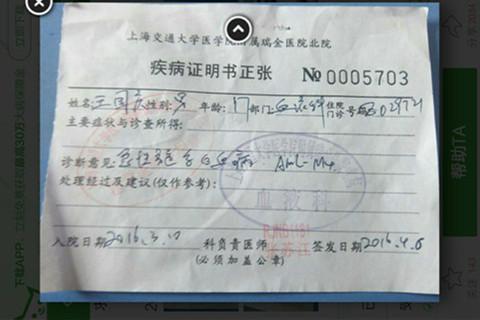 上海交通大学医学院附属瑞金医院北院
疾病证明书正张 №0005703
姓名 王国庆 性别: 男 年龄: 门 部门: 血液科 住院门诊号
主要症状与诊查所得:
诊断意见 急性髓系白血病 AML-M4
处理经过及建议(仅作参考):
血液科
RJN01181
张苏江
入院日期 2016.3.17 科负责医师 签发日期 2016.4.6
(必须加盖公章)
帮助TA
分享 2014
关注 143